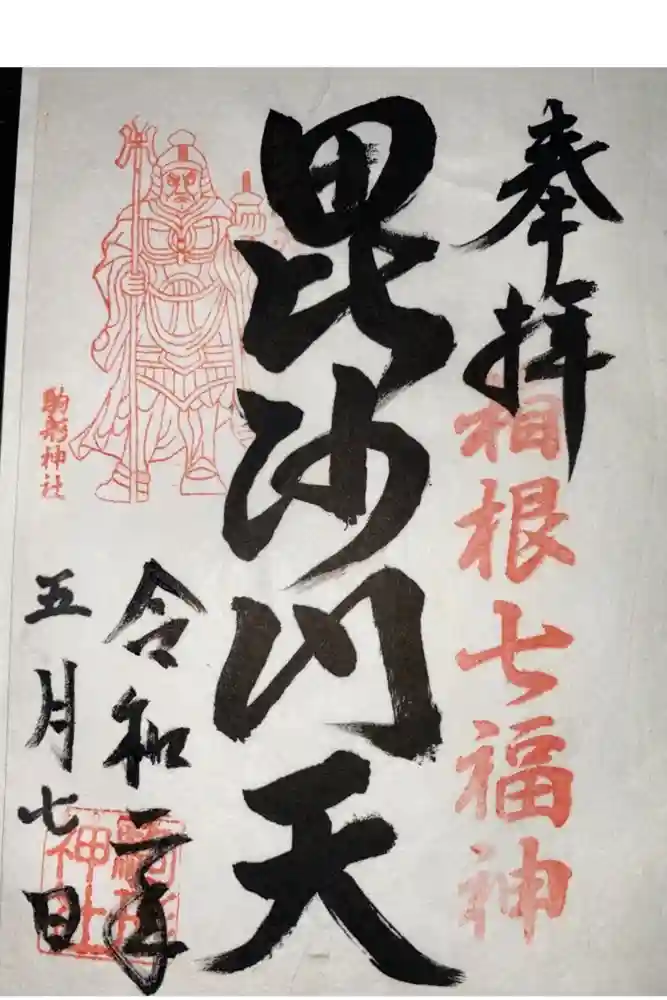 奉拝
箱根七福神
毘沙门天
駒形神社
令和二年
五月七日